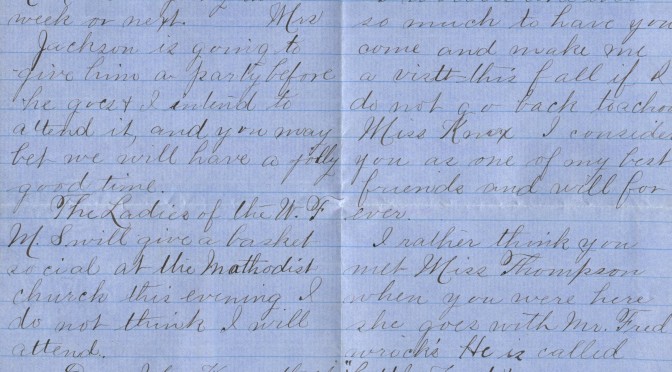 week or next. Mrs
Jackson is going to
give him a party before
he goes & I intend to
attend it, and you may
bet we will have a jolly
good time.
The Ladies of the W. F.
M. S will give a basket
social at the Mathodist
church this evening I
do not think I will
attend.
so much to have you
come and make me
a visit this fall if I
do not go back teach
Miss Knox I conside
you as one of my best
friends and will for
ever.
I rather think you
met Miss Thompson
when you were here
she goes with Mr. Fred
wrock's He is called